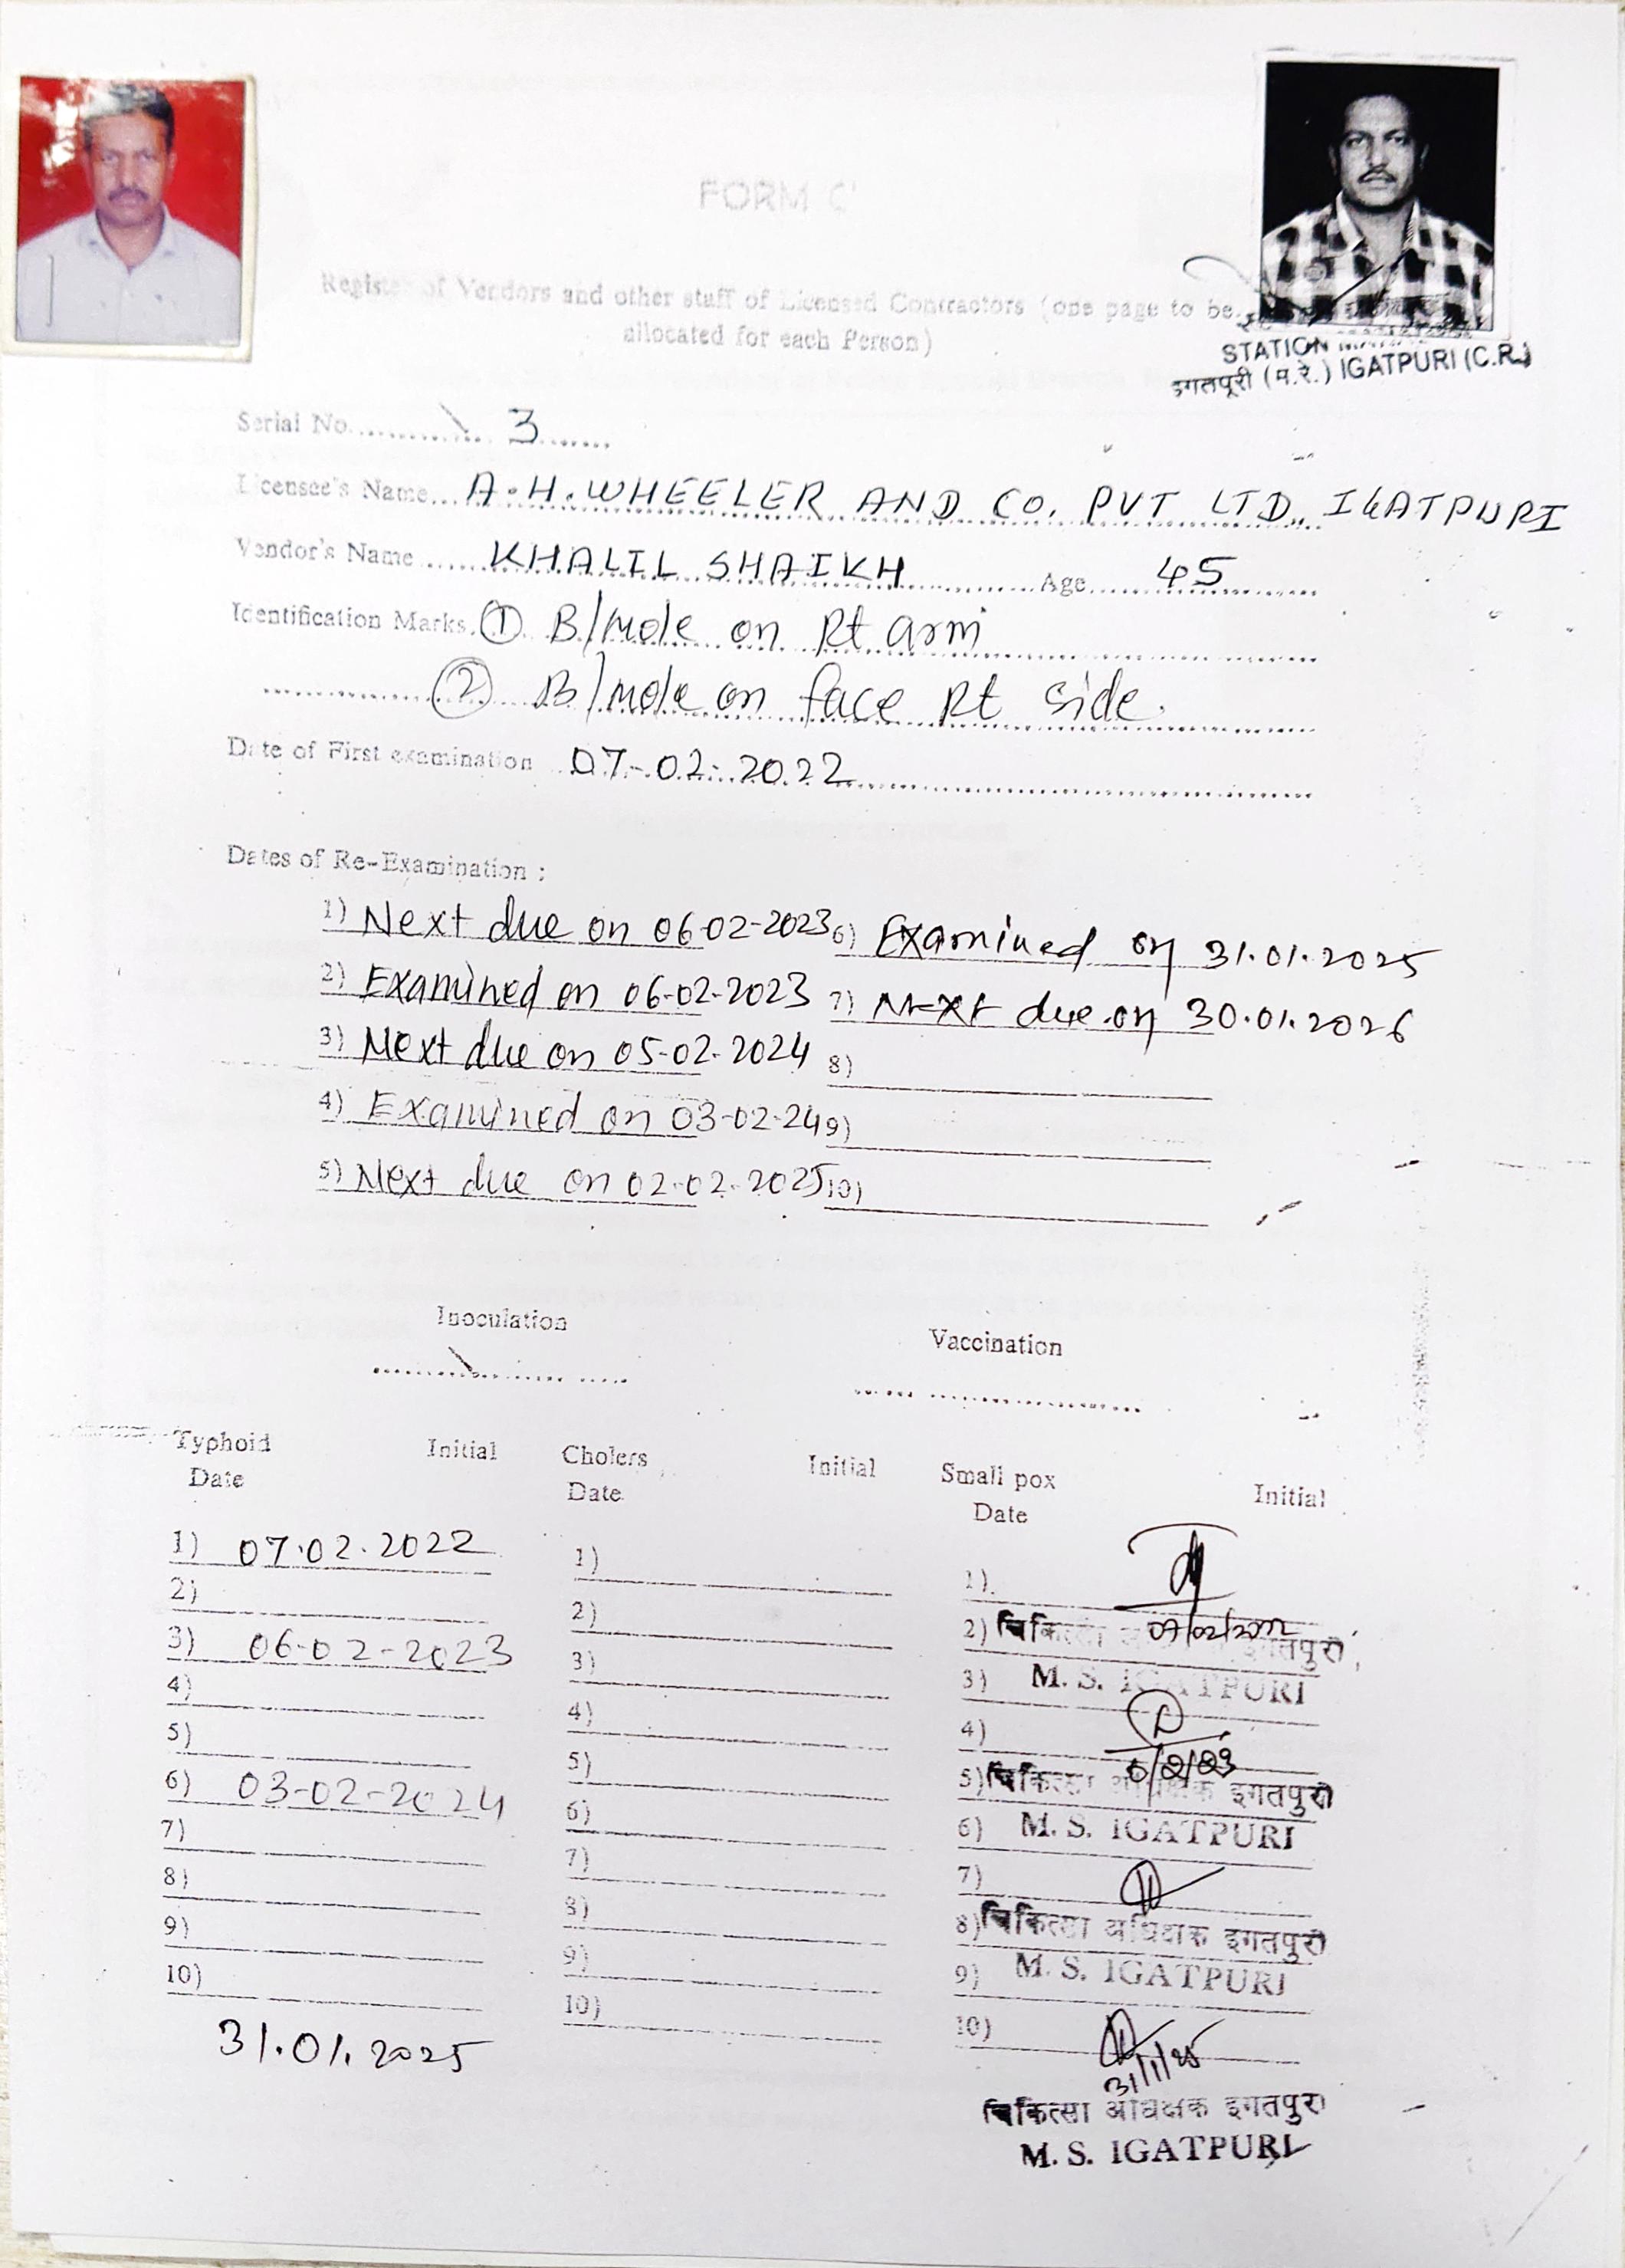 FORM 'C'
Register of Vendors and other staff of Licensed Contractors (one page to be
allocated for each Person)
STATION
इगतपूरी (म.रे.) IGATPURI (C.R.)
Serial No. 3
Licensee's Name A.H. WHEELER AND CO. PVT LTD. IGATPURI
Vendor's Name KHALIL SHAIKH Age 45
Identification Marks ① B/mole on Rt arm
② B/mole on face Rt side.
Date of First examination 07-02-2022
Dates of Re-Examination :
1) Next due on 06-02-2023 6) Examined on 31.01.2025
2) Examined on 06-02-2023 7) Next due on 30.01.2026
3) Next due on 05-02-2024 8)
4) Examined on 03-02-24 9)
5) Next due on 02-02-2025 10)
Inoculation Vaccination
Typhoid Initial Cholers Initial Small pox Initial
Date Date Date
1) 07.02.2022 1) 1)
2) 2) 2) चिकित्सा 07/02/2022 इगतपुरी
3) 06-02-2023 3) 3) M. S. IGATPURI
4) 4) 4)
6/2/23
5) 5) 5) चिकित्सा अधिक्षक इगतपुरी
6) 03-02-2024 6) 6) M. S. IGATPURI
7) 7) 7)
8) 8) 8) चिकित्सा अधिक्षक इगतपुरी
9) 9) 9) M. S. IGATPURI
10) 10) 10)
31.01.2025 31/1/25
चिकित्सा अधिक्षक इगतपुरी
M. S. IGATPURI